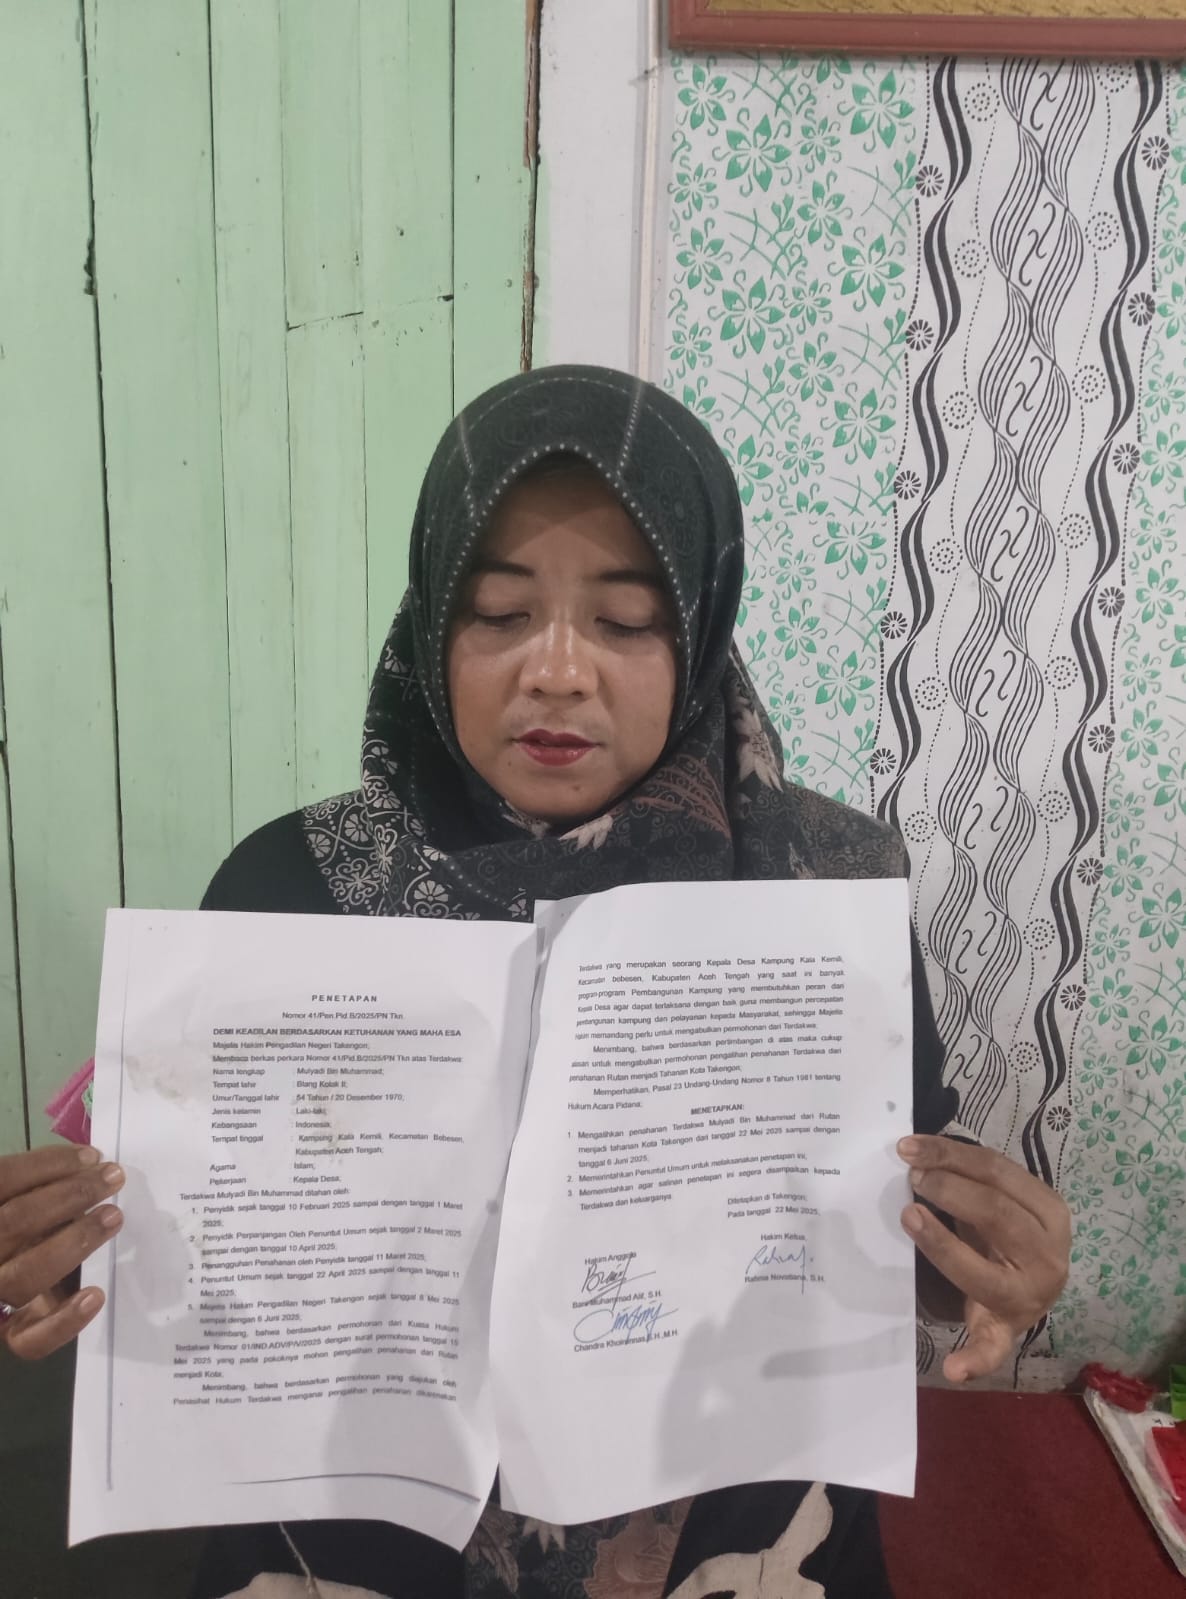 PENETAPAN
Nomor 41/Pen.Pid.B/2025/PN Tkn
DEMI KEADILAN BERDASARKAN KETUHANAN YANG MAHA ESA
Majelis Hakim Pengadilan Negeri Takengon;
Membaca berkas perkara Nomor 41/Pid.B/2025/PN Tkn atas Terdakwa:
Nama lengkap : Mulyadi Bin Muhammad;
Tempat lahir : Blang Kolak II;
Umur/Tanggal lahir : 54 Tahun / 20 Desember 1970;
Jenis kelamin : Laki-laki;
Kebangsaan : Indonesia;
Tempat tinggal : Kampung Kala Kemili, Kecamatan Bebesen,
Kabupaten Aceh Tengah;
Agama : Islam;
Pekerjaan : Kepala Desa;
Terdakwa Mulyadi Bin Muhammad ditahan oleh:
1. Penyidik sejak tanggal 10 Februari 2025 sampai dengan tanggal 1 Maret
2025;
2. Penyidik Perpanjangan Oleh Penuntut Umum sejak tanggal 2 Maret 2025
sampai dengan tanggal 10 April 2025;
3. Penangguhan Penahanan oleh Penyidik tanggal 11 Maret 2025;
4. Penuntut Umum sejak tanggal 22 April 2025 sampai dengan tanggal 11
Mei 2025;
5. Majelis Hakim Pengadilan Negeri Takengon sejak tanggal 8 Mei 2025
sampai dengan tanggal 6 Juni 2025;
Menimbang, bahwa berdasarkan permohonan dari Kuasa Hukum
Terdakwa Nomor 01/IND.ADV/P/V/2025 dengan surat permohonan tanggal 15
Mei 2025 yang pada pokoknya mohon pengalihan penahanan dari Rutan
menjadi Kota;
Menimbang, bahwa berdasarkan permohonan yang diajukan oleh
Penasihat Hukum Terdakwa mengenai pengalihan penahanan dikarenakan
Terdakwa yang merupakan seorang Kepala Desa Kampung Kala Kemili,
Kecamatan bebesen, Kabupaten Aceh Tengah yang saat ini banyak
program-program Pembangunan Kampung yang membutuhkan peran dari
Kepala Desa agar dapat terlaksana dengan baik guna membangun percepatan
pembangunan kampung dan pelayanan kepada Masyarakat, sehingga Majelis
Hakim memandang perlu untuk mengabulkan permohonan dari Terdakwa;
Menimbang, bahwa berdasarkan pertimbangan di atas maka cukup
alasan untuk mengabulkan permohonan pengalihan penahanan Terdakwa dari
penahanan Rutan menjadi Tahanan Kota Takengon;
Memperhatikan, Pasal 23 Undang-Undang Nomor 8 Tahun 1981 tentang
Hukum Acara Pidana;
MENETAPKAN:
1. Mengalihkan penahanan Terdakwa Mulyadi Bin Muhammad dari Rutan
menjadi tahanan Kota Takengon dari tanggal 22 Mei 2025 sampai dengan
tanggal 6 Juni 2025;
2. Memerintahkan Penuntut Umum untuk melaksanakan penetapan ini;
3. Memerintahkan agar salinan penetapan ini segera disampaikan kepada
Terdakwa dan keluarganya.
Ditetapkan di Takengon;
Pada tanggal 22 Mei 2025;
Hakim Anggota
Hakim Ketua,
Bani Muhammad Alif, S.H.
Rahma Novatiana, S.H.
S.H.,M.H.